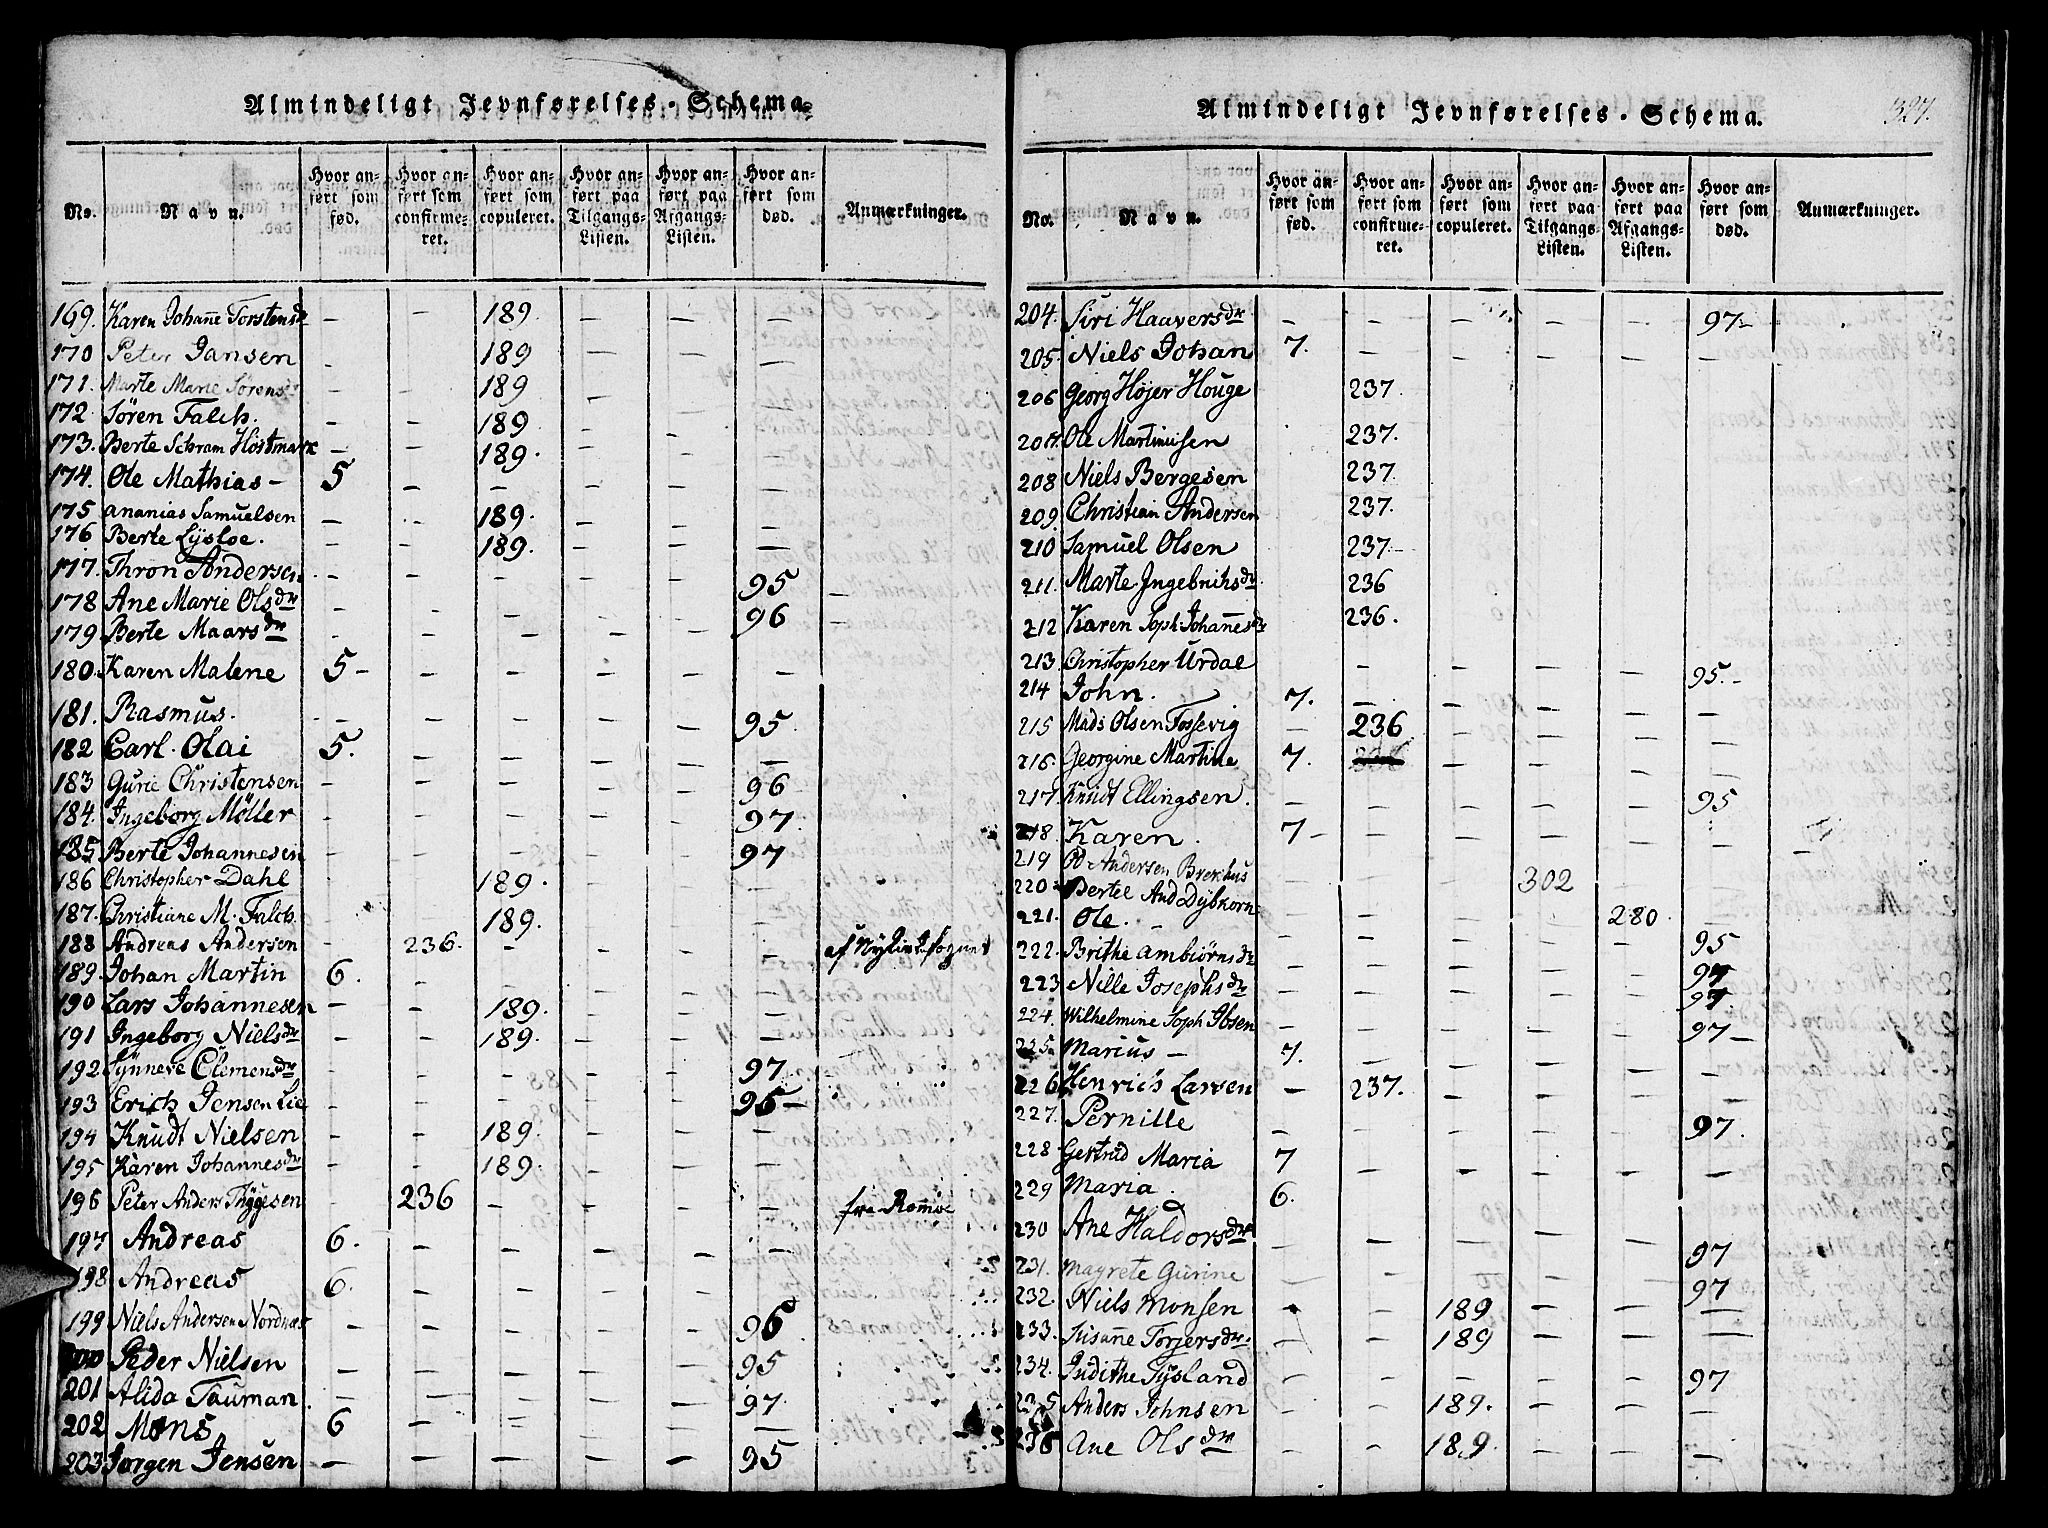 Almindeligt Jevnførelses-Schema.
No. Navn. Hvor anført som fød. Hvor anført som confirmeret. Hvor anført som copuleret. Hvor anført paa Tilgangs-Listen. Hvor anført paa Afgangs-Listen. Hvor anført som død. Anmærkninger.
169. Karen Johanne Torstensdr — — 189. — — —
170 Peter Jansen — — 189 — — —
171. Marte Marie Sørensdr — — 189 — — —
172 Søren Falch. — — 189 — — —
173. Berte Schram Hostmark — — 189. — — —
174. Ole Mathias — 5 — — — — —
175 Ananias Samuelsen — — 189. — — —
176 Berte Lysloe. — — 189. — — —
177. Thron Andersen — — — — — 95
178 Ane Marie Olsdr — — — — — 96
179 Berte Maarsdr — — — — — —
180. Karen Malene 5 — — — — — —
181. Rasmus. — — — — — 95
182 Carl Olai 5. — — — — —
183 Gurie Christensen — — — — — 96
184. Ingeborg Møller — — — — — 97.
185 Berte Johannesen — — — — — 97
186 Christopher Dahl — — 189. — — —
187. Christiane M. Falch. — — 189. — — —
188 Andreas Andersen — 236. — — — —
189. Johan Martin 6. — — — — —
190 Lars Johannesen — — 189. — — —
191 Ingeborg Nielsdr — — 189. — — —
192 Synneve Clemensdr — — — — — 97
193 Erich Jensen Lie — — — — — 95 —
194 Knudt Nielsen — — 189. — — —
195 Karen Johannesdr — — 189. — — —
196 Peter Anders Thygesen — 236 — — — — fra Romøe
197 Andreas 6. — — — — —
198 Andreas 6. — — — — —
199 Niels Andersen Nordnæs — — — — — 96
200 Peder Nielsen — — — — — 95
201 Alida Tauman. — — — — — 97.
202 Mons 6 — — — — —
203 Jørgen Jensen — — — — — 95
Almindeligt Jevnførelses-Schema. 327.
No. Navn. Hvor anført som fød. Hvor anført som confirmeret. Hvor anført som copuleret. Hvor anført paa Tilgangs-Listen. Hvor anført paa Afgangs-Listen. Hvor anført som død. Anmærkninger.
204. Siri Haaversdr — — — — — 97 —
205. Niels Johan 7. — — — — —
206 Georg Højer Houge 237.
207. Ole Martinusen 237.
208 Niels Bergesen 237.
209. Christian Andersen 237.
210 Samuel Olsen 237 —
211. Marte 236
212 Karen Soph. Johannesdr 236.
213. Christopher Urdal — — — — 95. —
214 John. 7. — — — — —
215 Mads Olsen Fossevig — 236 — — — —
216. Georgine Martine 7. 236 — — — —
217. Knudt Ellingsen. — — — — — 95
218 Karen. 7 — — — — — —
219 Andersen — — — 302 — —
220. Bertel And Dybkorn — — — — 280. —
221. Ole. — — — — — 95
222. Brithe Ambiørnsdr — — — — — 97
223 Nille Josephsdr — — — — — 97
224. Wilhelmine Soph Ibsen — — — — — 97 —
225. Marius — 7. — — — — —
226 Henrich Larsen — 237. — — — —
227. Pernille — — — — — 97.
228 Gertrud Maria 7 — — — — —
229 Maria 6. — — — — —
230 Ane Haldorsdr — — — — — 97
231. Magrete Gurine — — — — — 97
232. Niels Monsen — — 189 — — —
233. Susanne Torjersdr. — — 189 — — —
234. Judithe Tysland — — — — — 97
235 Anders Johnsen — — 189. — — —
236 Ane Olsdr — — 189. — — —